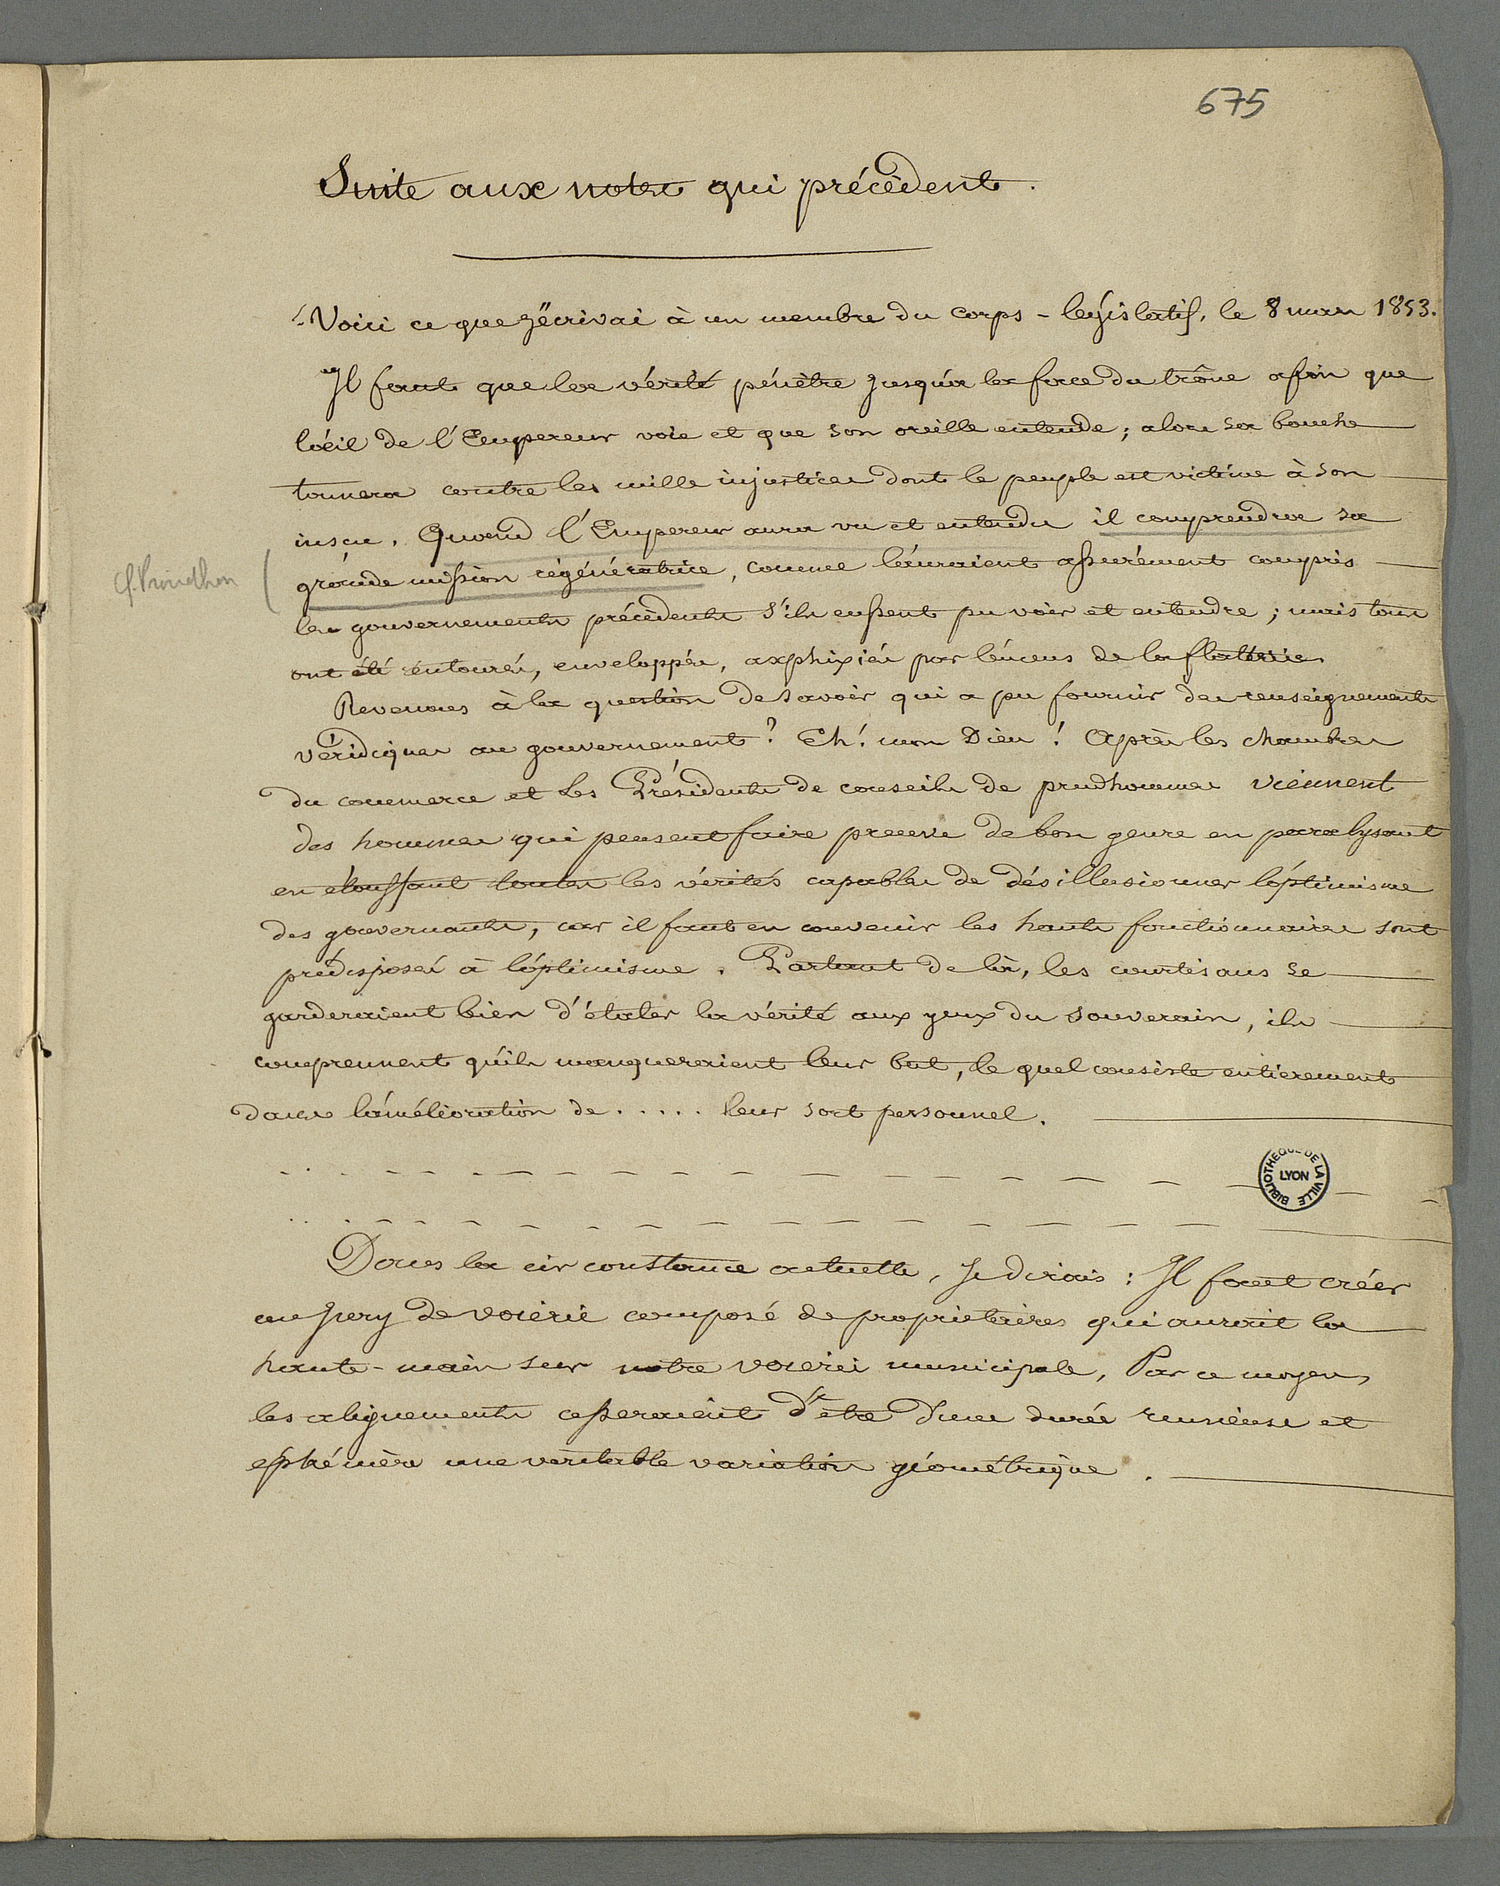 675
Suite aux notes qui précèdent.
Voici ce que j'écrivai à un membre du corps-législatif, le 8 mars 1853.
Il faut que la vérité pénètre jusqu'a la face du trône afin que
l'oeil de l'Empereur voie et que son oreille entende; alors sa bouche
tonnera contre les mille injustices dont le peuple est victime à son
insçu. Quand l'Empereur aura vu et entendu il comprendra sa
grande mission régénératrice, comme l'auraient assurément compris
cf. Proudhon
les gouvernements précédents s'ils eussent pu voir et entendre; mais tous
ont été entourés, enveloppés, asphixiés par l'encens de la flatterie.
Revenons à la question de savoir qui a pu fournir des renseignements
véridiques au gouvernement? Eh! mon Dieu! Après les chambres
du commerce et les Présidents de conseils de prudhommes viennent
des hommes qui pensent faire preuve de bon genre en paralysant
en étouffant toutes les vérités capables de désillusionner l'optimisme
des gouvernants, car il faut en convenir les hauts fonctionnaires sont
prédisposés à l'optimisme. Partant de là, les courtisans se
garderaient bien d'étaler la vérité aux yeux du souverain, ils
comprennent qu'ils manqueraient leur but, le quel consiste entierement
dans l'amélioration de ..... leur sort personnel.
BIBLIOTHEQUE DE LA VILLE LYON
Dans la circonstance actuelle, Je dirais: Il faut créer
un Jury de voierie composé de proprietaires qui aurait la
haute-main sur notre voierie municipale, Par ce moyen,
les alignements cesseraient d'être d'une durée ruineuse et
ephémère une veritable variation géométrique.